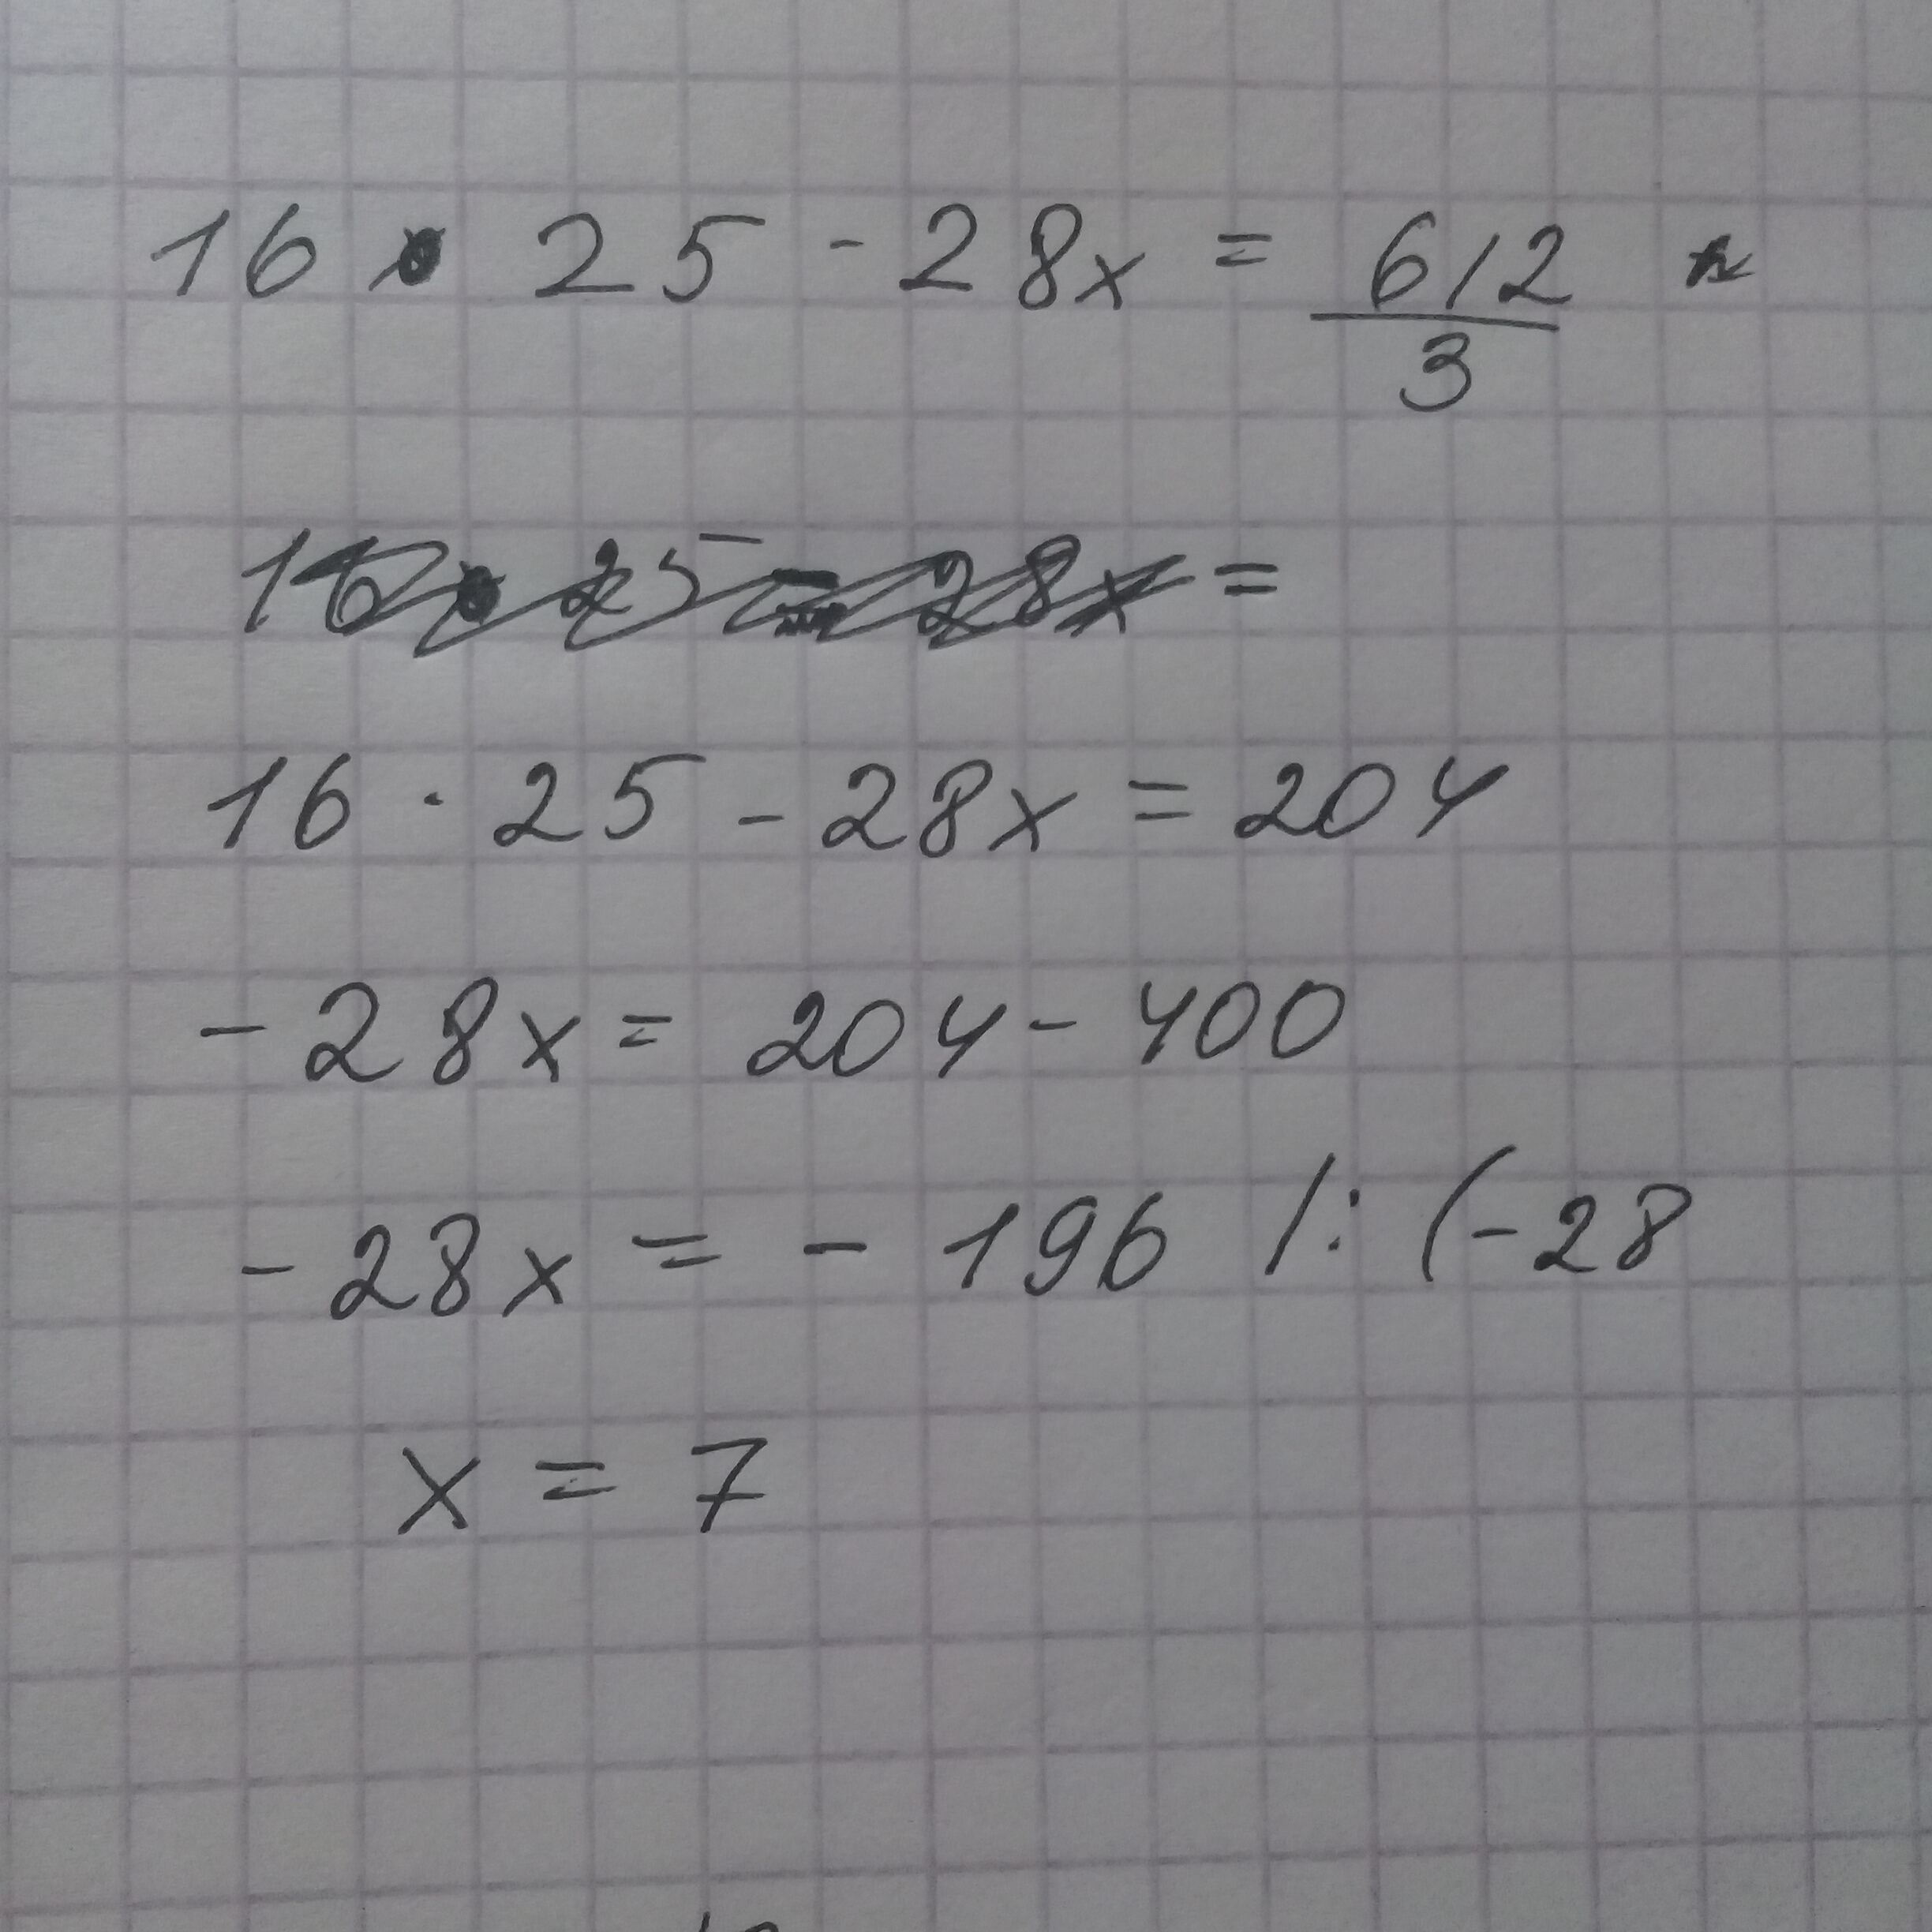 16 · 25 - 28x = 612/3
16 · 25 - 28x =
16 · 25 - 28x = 204
- 28x = 204 - 400
- 28x = - 196 /: (-28
x = 7